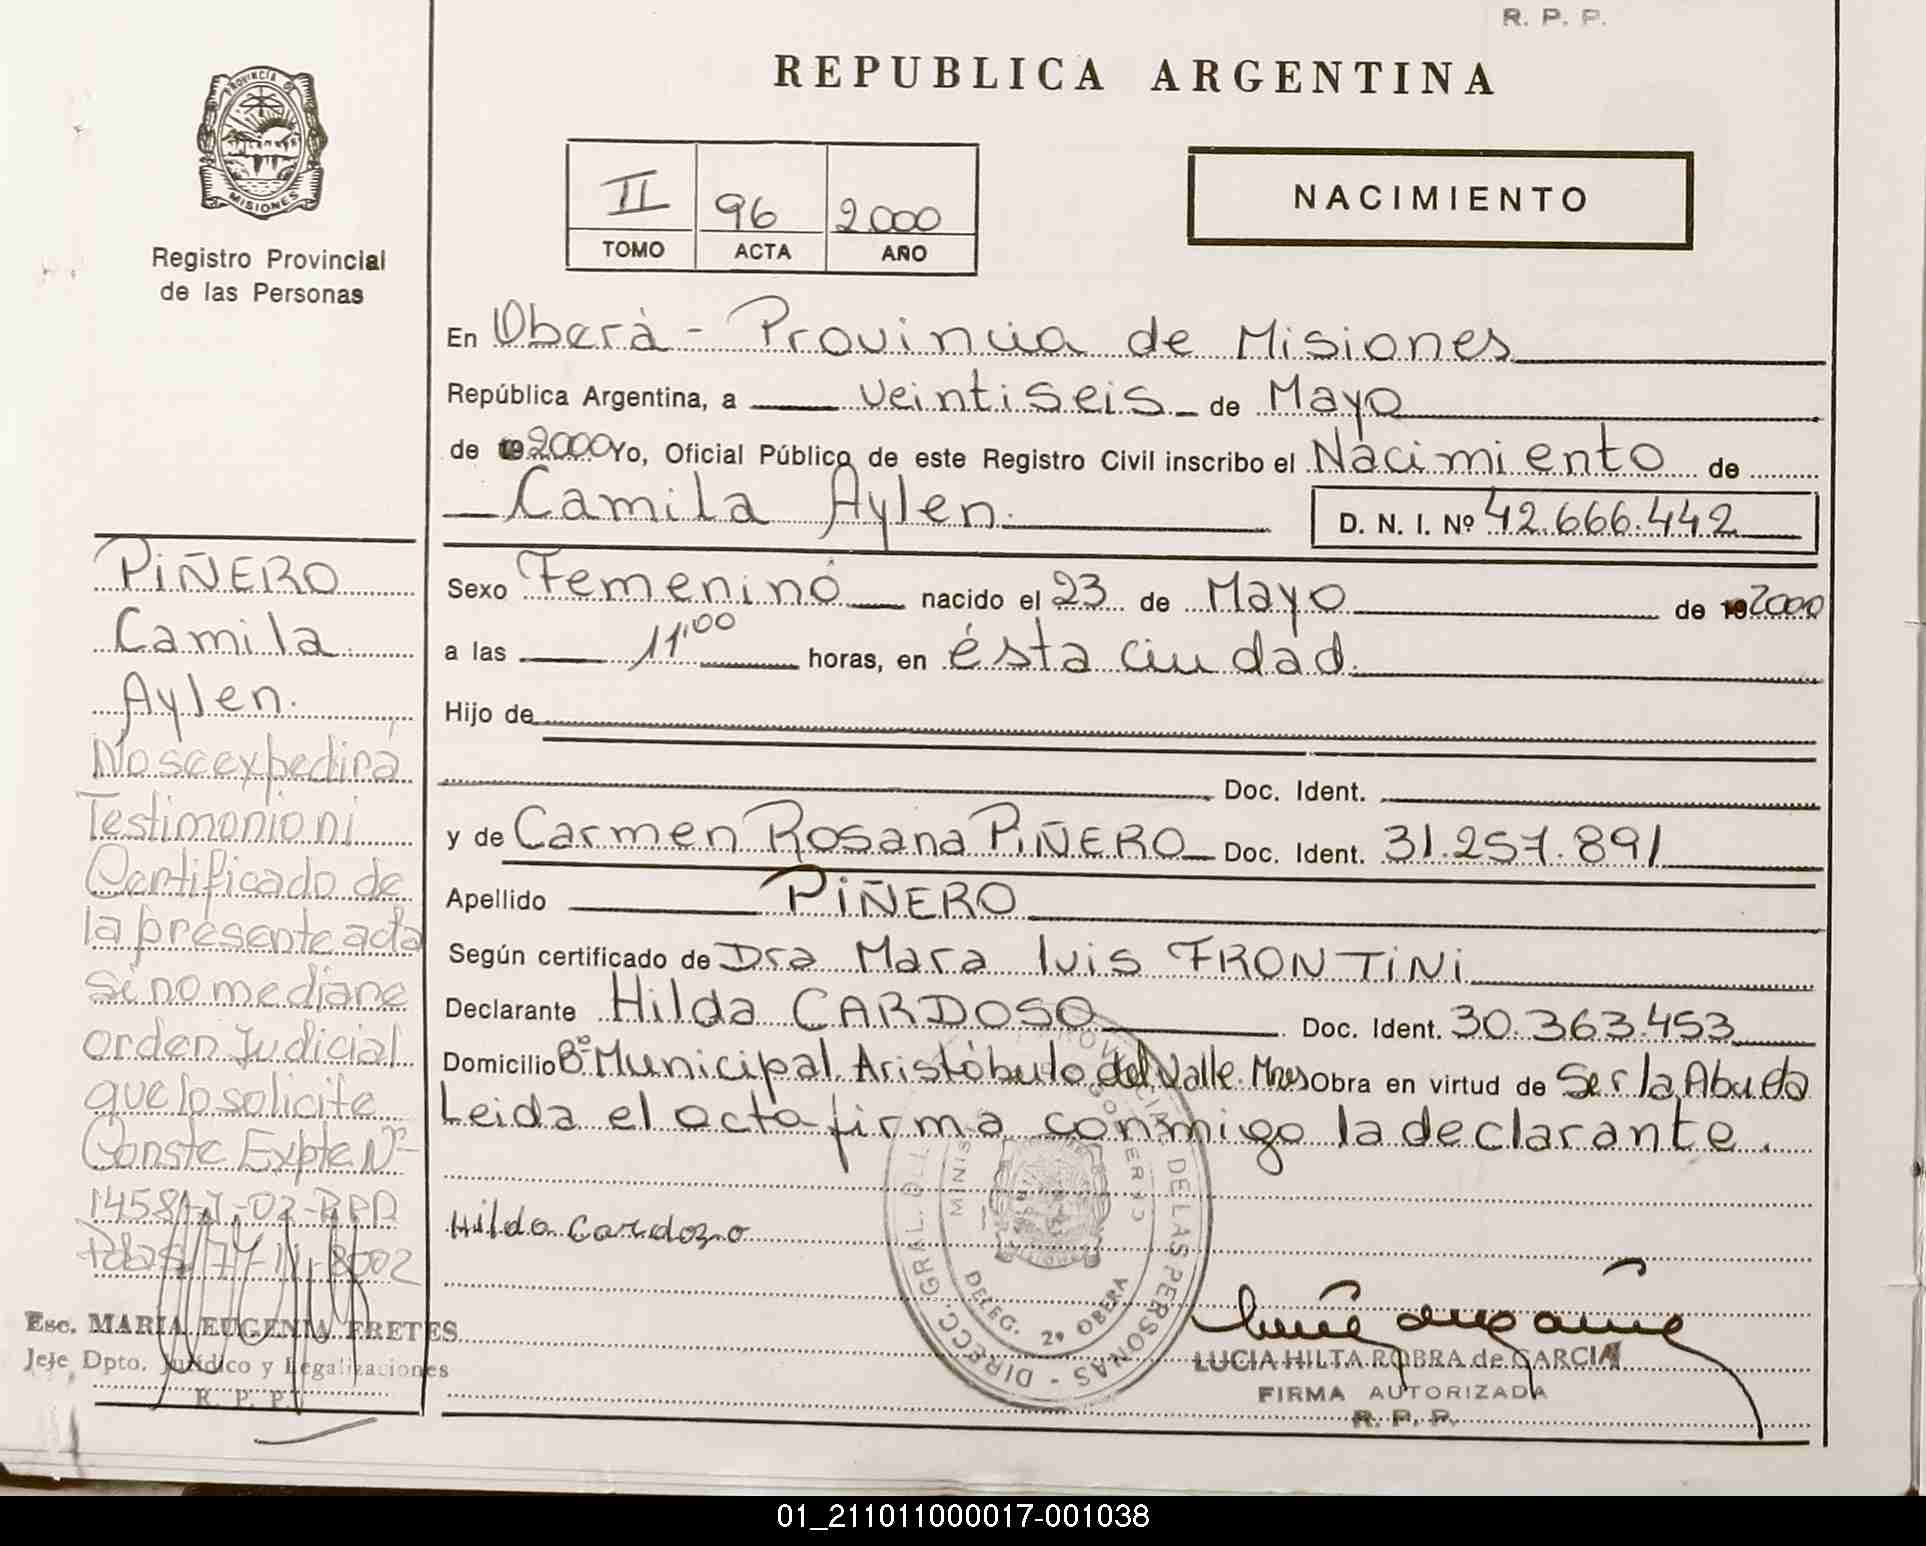 R. P. P.
REPUBLICA ARGENTINA
PROVINCIA DE
MISIONES
Registro Provincial
de las Personas
II 96 2.000
TOMO ACTA AÑO
NACIMIENTO
En Oberà - Provincia de Misiones
República Argentina, a veintiseis de Mayo
de 19 2000 Yo, Oficial Público de este Registro Civil inscribo el Nacimiento de
Camila Aylen.
D. N. I. Nº 42.666.442
Sexo Femenino nacido el 23 de Mayo de 19 2000
a las 11,00 horas, en ésta ciudad.
Hijo de
Doc. Ident.
y de Carmen Rosana PIÑERO Doc. Ident. 31.257.891
Apellido PIÑERO
Según certificado de Dra Mara luis FRONTINI
Declarante Hilda CARDOSO Doc. Ident. 30.363.453
Domicilio Bº Municipal Aristóbulo del Valle. Mnes Obra en virtud de Ser la Abuela
Leida el acta firma conmigo la declarante.
Hilda Cardozo
DELEG. 2ª OBERA
LUCIA HILTA ROBRA de GARCIA
FIRMA AUTORIZADA
R. P. P.
PIÑERO
Camila
Aylen.
No se expedirà
Testimonio ni
Certificado de
la presente acta
si no mediare
orden Judicial
que lo solicite
Conste Expte Nº
Esc. MARIA EUGENIA FRETES
Jefe Dpto. Jurídico y Legalizaciones
R. P. P.
01_211011000017-001038